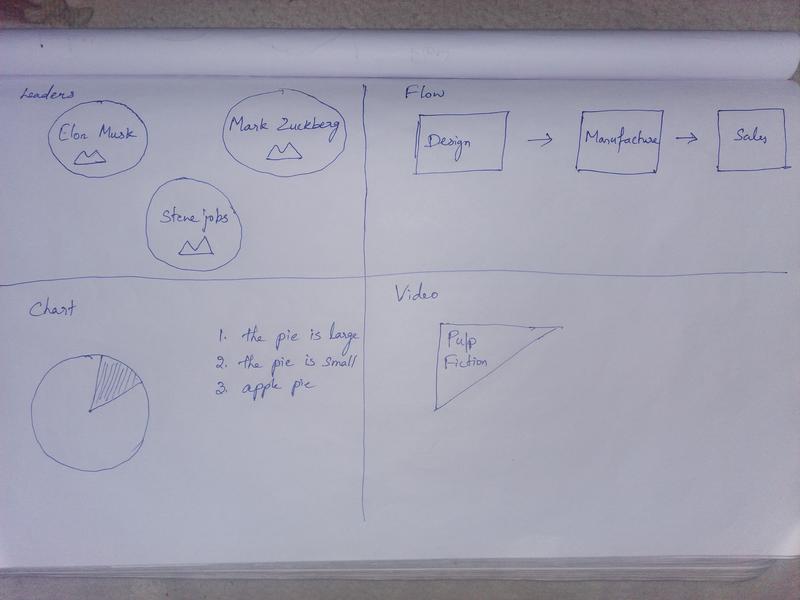 Leaders
Elon Musk
Mark Zuckberg
Steve jobs
Flow
Design
Manufacture
Sales
Chart
1. the pie is large
2. the pie is small
3. apple pie
Video
Pulp
Fiction